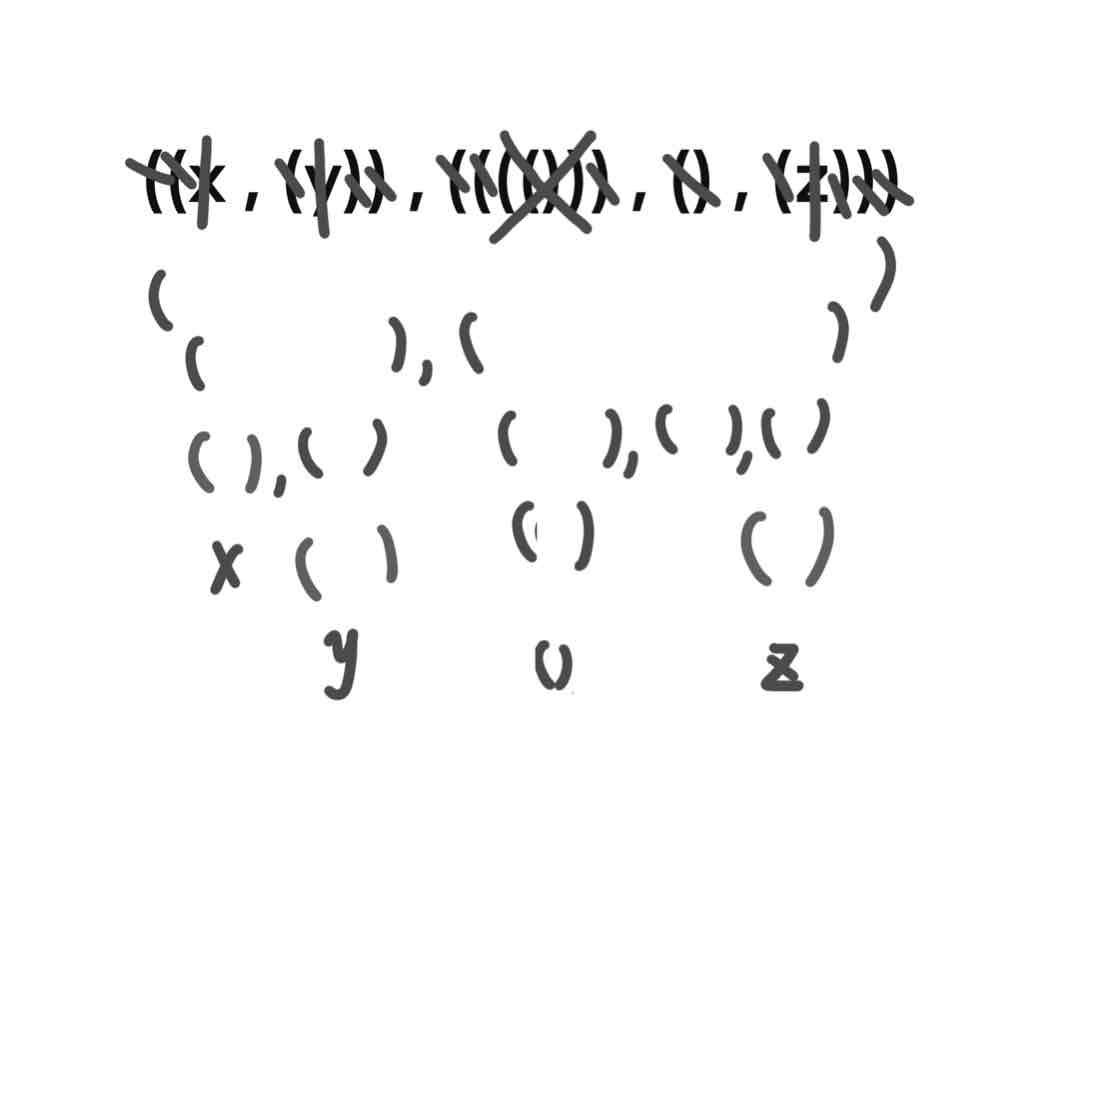 ((x , (y)) , (((())) , () , (z)))
( )
( ) , ( )
( ) , ( ) ( ) , ( ) , ( )
x ( ) ( ) ( )
y () z